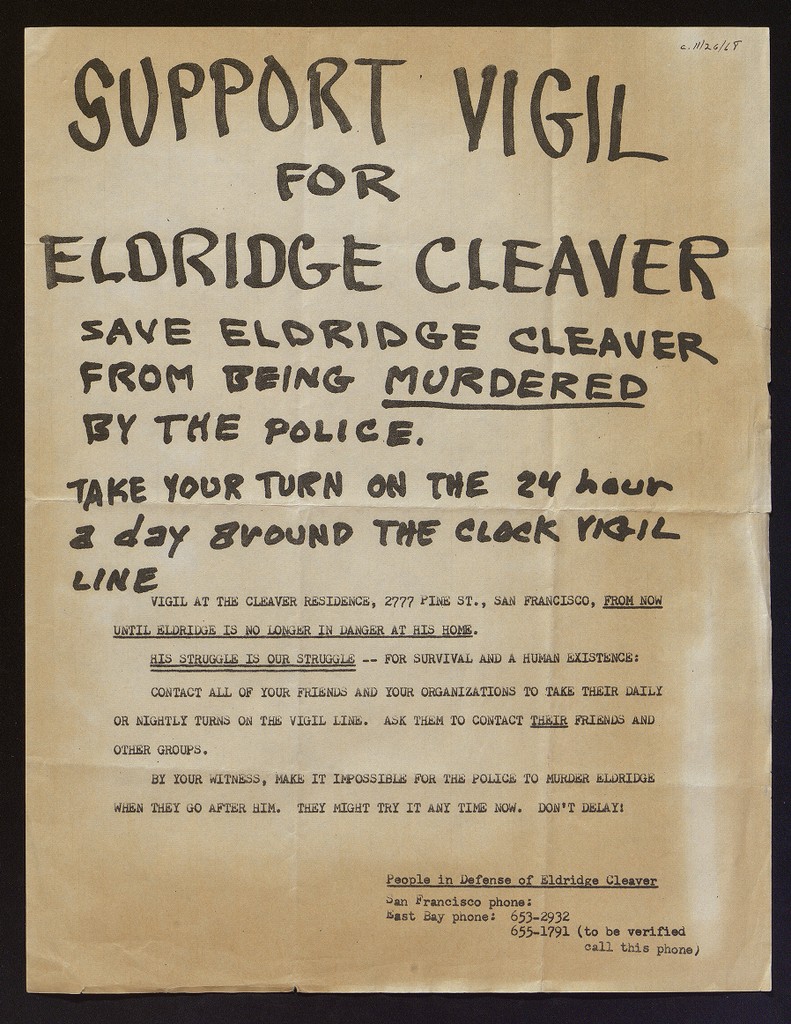 c. 11/26/68
SUPPORT VIGIL
FOR
ELDRIDGE CLEAVER
SAVE ELDRIDGE CLEAVER
FROM BEING MURDERED
BY THE POLICE.
TAKE YOUR TURN ON THE 24 hour
a day around THE CLOCK VIGIL
LINE
VIGIL AT THE CLEAVER RESIDENCE, 2777 PINE ST., SAN FRANCISCO, FROM NOW
UNTIL ELDRIDGE IS NO LONGER IN DANGER AT HIS HOME.
HIS STRUGGLE IS OUR STRUGGLE -- FOR SURVIVAL AND A HUMAN EXISTENCE:
CONTACT ALL OF YOUR FRIENDS AND YOUR ORGANIZATIONS TO TAKE THEIR DAILY
OR NIGHTLY TURNS ON THE VIGIL LINE. ASK THEM TO CONTACT THEIR FRIENDS AND
OTHER GROUPS.
BY YOUR WITNESS, MAKE IT IMPOSSIBLE FOR THE POLICE TO MURDER ELDRIDGE
WHEN THEY GO AFTER HIM. THEY MIGHT TRY IT ANY TIME NOW. DON'T DELAY!
People in Defense of Eldridge Cleaver
San Francisco phone:
East Bay phone: 653-2932
655-1791 (to be verified
call this phone)